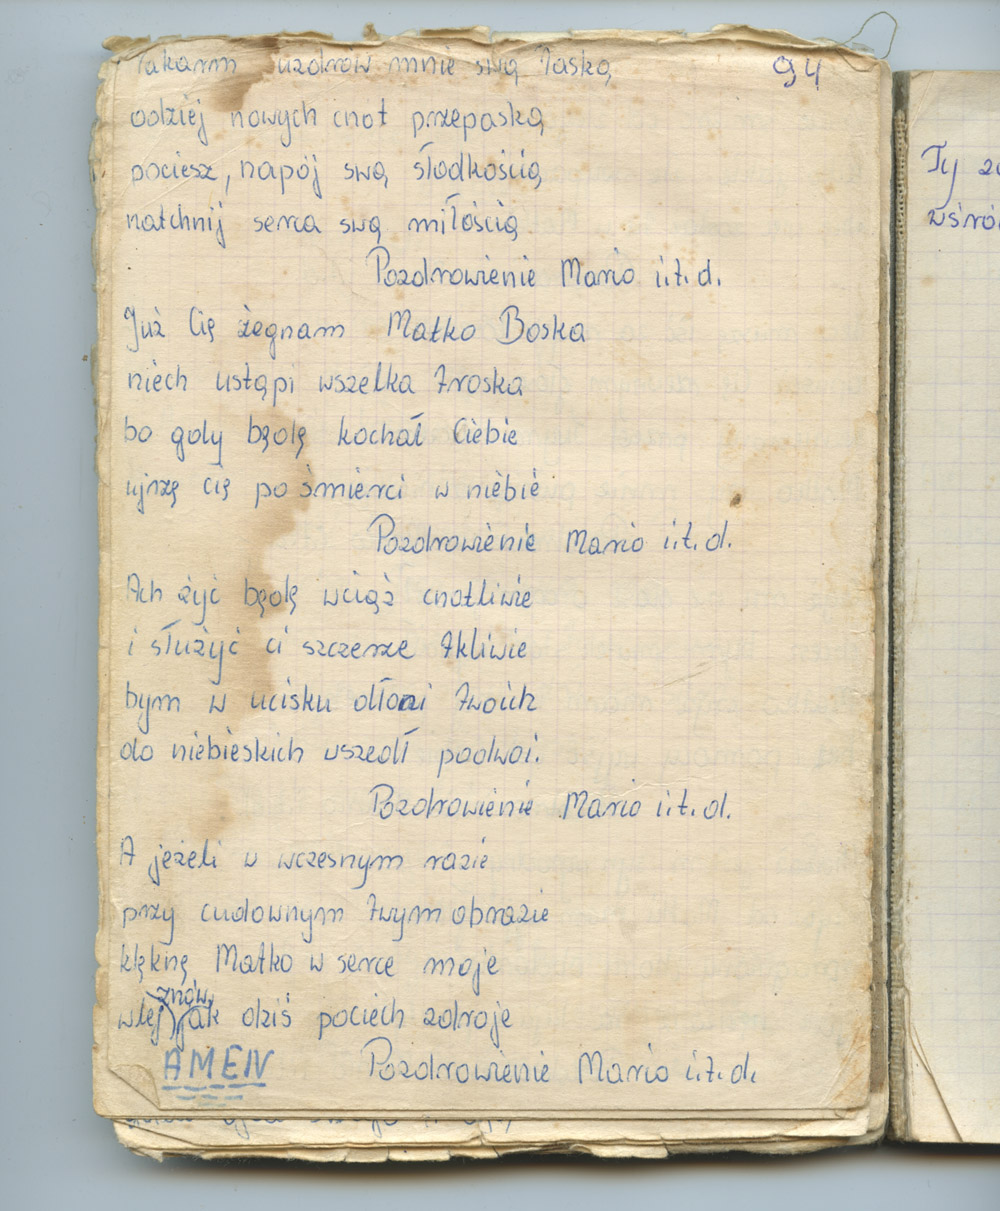 uzdrów mnie swą łaską 94
odziej nowych cnot przepaską
pociesz, napój swą słodkością
natchnij serca swą miłością
Pozdrowienie Mario i.t.d.
Już Cię żegnam Matko Boska
niech ustąpi wszelka troska
bo gdy będę kochał Ciebie
ujrzę cię po śmierci w niebie
Pozdrowienie Mario i.t.d.
Ach żyć będę wciąż cnotliwie
i służyć ci szczerze tkliwie
bym w ucisku dłoni twoich
do niebieskich wszedł podwoi.
Pozdrowienie Mario i.t.d.
A jeżeli w wczesnym razie
przy cudownym twym obrazie
klęknę Matko w serce moje
wlej znów jak dziś pociech zdroje
AMEN Pozdrowienie Mario i.t.d.
Ty
wśród